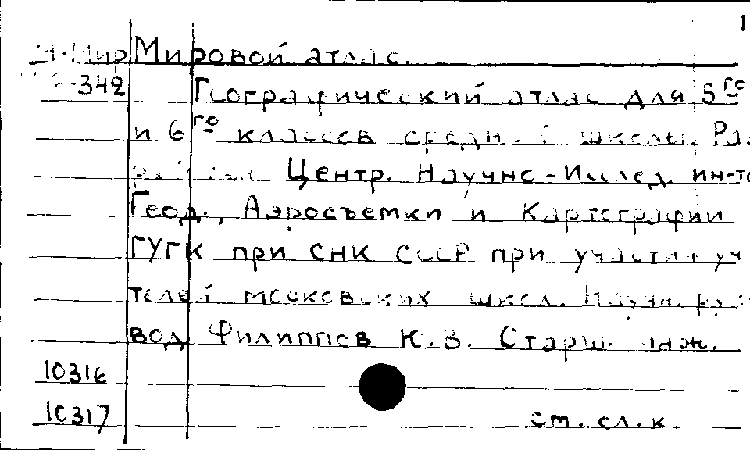 1
Мировой атлас.
-342 Географический атлас для 5го
и 6го классов средн. школы.
Центр. Научно-Исслед. ин-т
Геод., Аэросъемки и Картографии
ГУГК при СНК СССР при участии уч
телей московских школ. Научн.
вод. Филиппов К.В. Старш. инж.
10316
10317 см. сл. к.